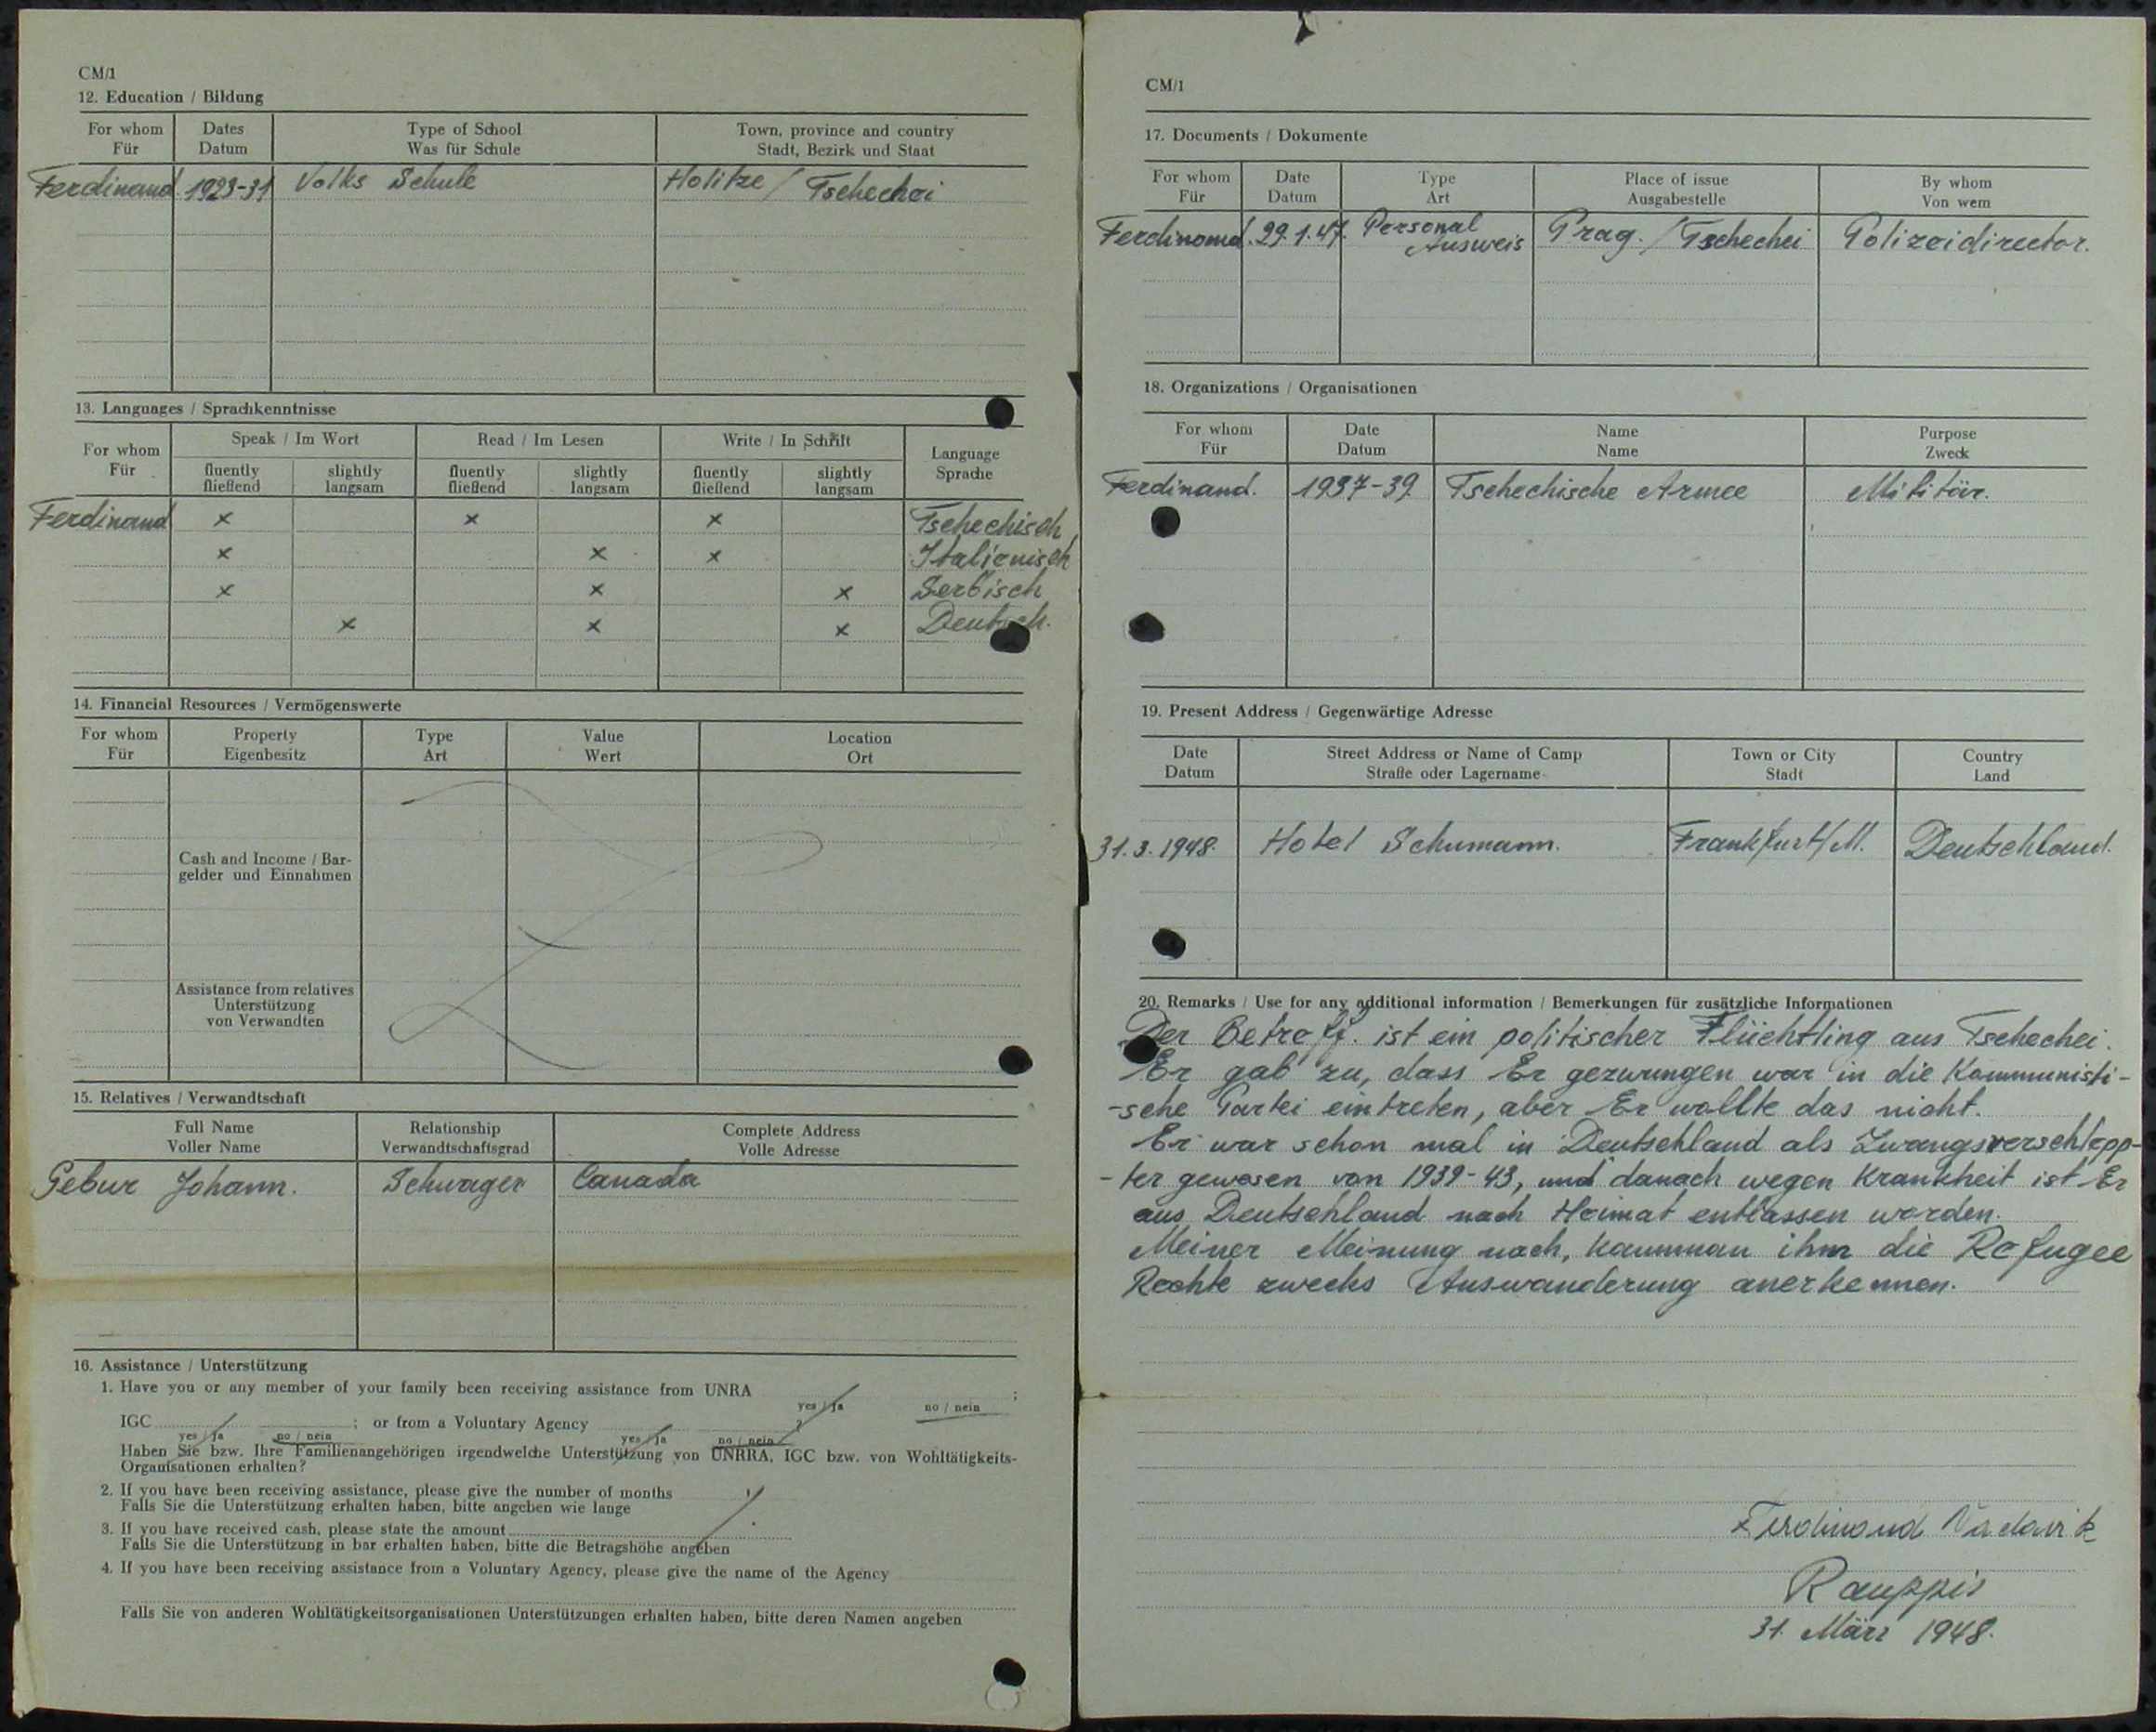 CM/1
12. Education / Bildung
For whom Dates Type of School Town, province and country
Für Datum Was für Schule Stadt, Bezirk und Staat
Ferdinand 1923-31 Volks Schule Holitze / Tschechei
13. Languages / Sprachkenntnisse
For whom Speak / Im Wort Read / Im Lesen Write / In Schrift Language
Für fluently slightly fluently slightly fluently slightly Sprache
fließend langsam fließend langsam fließend langsam
Ferdinand x x x Tschechisch
x x x Italienisch
x x x Serbisch
x x x Deutsch.
14. Financial Resources / Vermögenswerte
For whom Property Type Value Location
Für Eigenbesitz Art Wert Ort
Cash and Income / Bar-
gelder und Einnahmen
Assistance from relatives
Unterstützung
von Verwandten
15. Relatives / Verwandtschaft
Full Name Relationship Complete Address
Voller Name Verwandtschaftsgrad Volle Adresse
Gebur Johann. Schwager Canada
16. Assistance / Unterstützung
1. Have you or any member of your family been receiving assistance from UNRA ;
yes / ja no / nein
IGC ; or from a Voluntary Agency ?
yes / ja no / nein yes / ja no / nein
Haben Sie bzw. Ihre Familienangehörigen irgendwelche Unterstützung von UNRRA, IGC bzw. von Wohltätigkeits-
Organisationen erhalten?
2. If you have been receiving assistance, please give the number of months
Falls Sie die Unterstützung erhalten haben, bitte angeben wie lange
3. If you have received cash, please state the amount
Falls Sie die Unterstützung in bar erhalten haben, bitte die Betragshöhe angeben
4. If you have been receiving assistance from a Voluntary Agency, please give the name of the Agency
Falls Sie von anderen Wohltätigkeitsorganisationen Unterstützungen erhalten haben, bitte deren Namen angeben
CM/1
17. Documents / Dokumente
For whom Date Type Place of issue By whom
Für Datum Art Ausgabestelle Von wem
Ferdinand. 29.1.47. Personal Ausweis Prag. / Tschechei Polizeidirector.
18. Organizations / Organisationen
For whom Date Name Purpose
Für Datum Name Zweck
Ferdinand. 1937-39 Tschechische Armee Militär.
19. Present Address / Gegenwärtige Adresse
Date Street Address or Name of Camp Town or City Country
Datum Straße oder Lagername Stadt Land
31.3.1948. Hotel Schumann. Frankfurt/M. Deutschland.
20. Remarks / Use for any additional information / Bemerkungen für zusätzliche Informationen
Der Betreff. ist ein politischer Flüchtling aus Tschechei.
Er gab zu, dass Er gezwungen war in die Kommunisti-
-sche Partei eintreten, aber Er wollte das nicht.
Er war schon mal in Deutschland als Zwangsverschlepp-
-ter gewesen von 1939-43, und danach wegen Krankheit ist Er
aus Deutschland nach Heimat entlassen worden.
Meiner Meinung nach, kannman ihm die Refugee
Rechte zwecks Auswanderung anerkennen.
Ferdinand
31. März 1948.